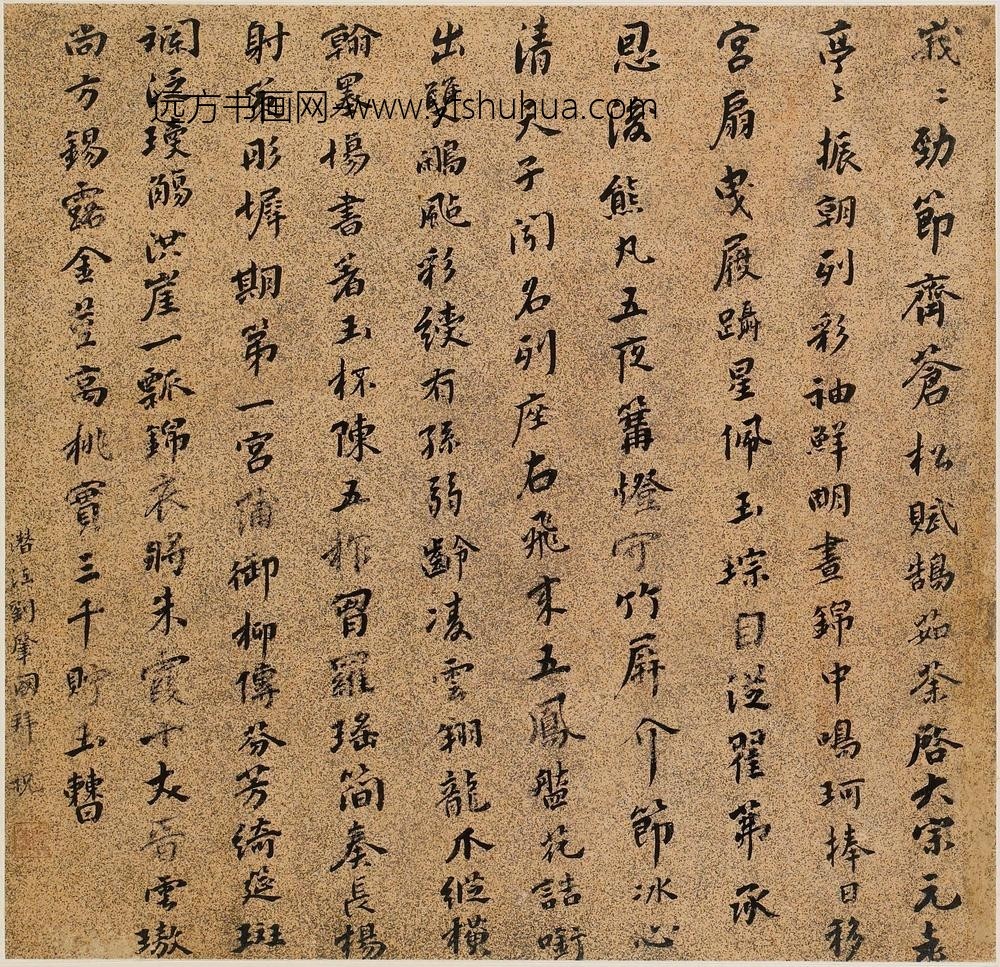 峩〻勁節齊蒼松賦鵠茹荼啓大宗元老
亭〻振朝列彩袖鮮明晝錦中鳴珂捧日移
宮扇曳履躡星佩玉琮自從翟茀承
恩後熊丸五夜篝燈竹屏介節冰心
清天子聞名列座右飛來五鳳盤花誥銜
出雙鵰颭彩繞有孫弱齡凌雲翔龍爪縱橫
翰墨場書著玉杯陳五柞胃羅瑤簡奏長楊
射策彤墀期第一宮御柳傳芬芳綺筵斑
斕泛瓊觴洪崖一瓢錦衣將朱霞十丈雲璈
尚方錫露金莖高桃實三千貯玉
劉肇國拜祝
远方书画网 www.yfshuhua.com